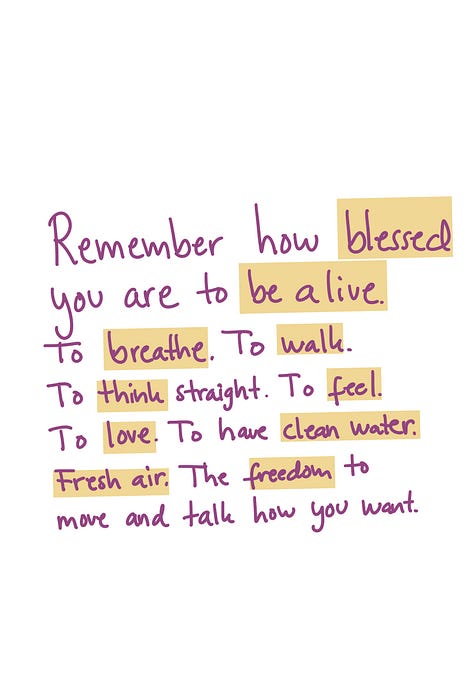 Remember how blessed
you are to be alive.
To breathe. To walk.
To think straight. To feel.
To love. To have clean water.
Fresh air. The freedom to
move and talk how you want.